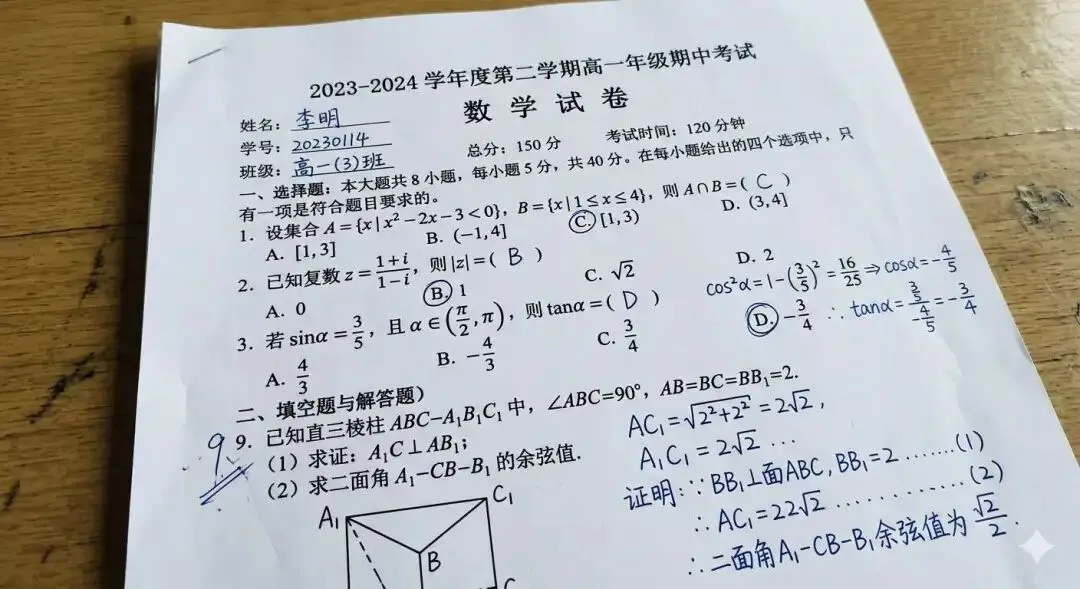 2023-2024 学年度第二学期高一年级期中考试
数 学 试 卷
姓名: 李明
学号: 20230114
班级: 高一(3)班
总分: 150 分 考试时间: 120 分钟
一、选择题: 本大题共 8 小题, 每小题 5 分, 共 40 分。在每小题给出的四个选项中, 只
有一项是符合题目要求的。
1. 设集合 A={x|x²-2x-3<0}, B={x|1≤x≤4}, 则 A∩B=( C )
A. [1,3] B. (-1,4] C. [1,3) D. (3,4]
2. 已知复数 z=(1+i)/(1-i), 则|z|=( B )
A. 0 B. 1 C. √2 D. 2
3. 若 sinα=3/5, 且 α∈(π/2,π), 则 tanα=( D )
A. 4/3 B. -4/3 C. 3/4 D. -3/4
cos²α=1-(3/5)²=16/25⇒cosα=-4/5
∴ tanα=(3/5)/(-4/5)=-3/4
二、填空题与解答题)
9. 已知直三棱柱 ABC-A₁B₁C₁ 中, ∠ABC=90°, AB=BC=BB₁=2.
(1) 求证: A₁C⊥AB₁;
(2) 求二面角 A₁-CB-B₁ 的余弦值.
9
AC₁=√(2²+2²)=2√2,
A₁C₁=2√2 ...
证明: ∵BB₁⊥面ABC, BB₁=2 .......(1)
∴AC₁=22√2 ............(2)
∴二面角A₁-CB-B₁余弦值为 √2/2.
A₁
C₁
B
C